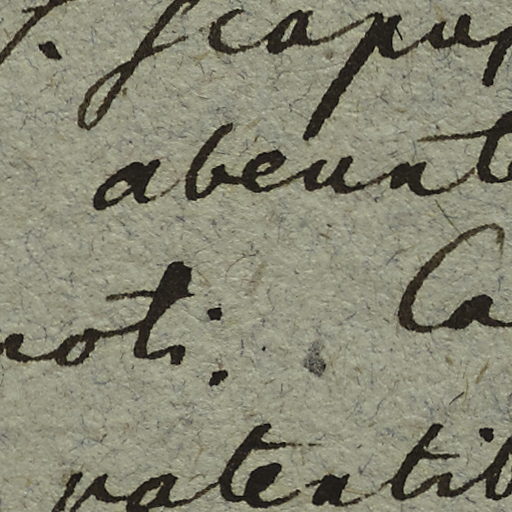 scapu
abeunt
noti. Ca
patentib